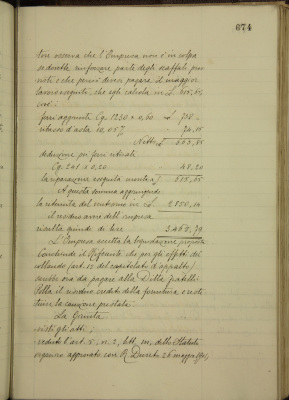 674
tore osserva che l'Impresa non è in colpa
se dovette rinforzare parte degli scaffali pre-
visti e che perciò devesi pagare il maggior
lavoro eseguito, che egli calcola in L. 615,65
cioè:
ferri aggiunti Cg. 1230 a 0,60 L. 738,-
ribasso d'asta 10.05% 74,15
Nette L. 663,85
deduzione pei ferri ritirati
Cg. 241 a 0,20 48,20
la riparazione eseguita monta a L. 615,65
A questa somma aggiungendo
la ritenuta del ventesimo in L. 2850,14
il residuo avere dell'impresa
risulta quindi di lire 3465,79
L'Impresa accetta la liquidazione proposta
Conchiude il Referente che per gli effetti del
collaudo (art. 15 del capitolato d'appalto)
sarebbe ora da pagare alla Ditta fratelli
il residuo credito della fornitura e resti-
tuire la cauzione prestata.
La Giunta
visti gli atti;
veduto l'art. 5, n. 2, lett. m, dello Statuto
organico approvato con R. Decreto 26 maggio 1901,